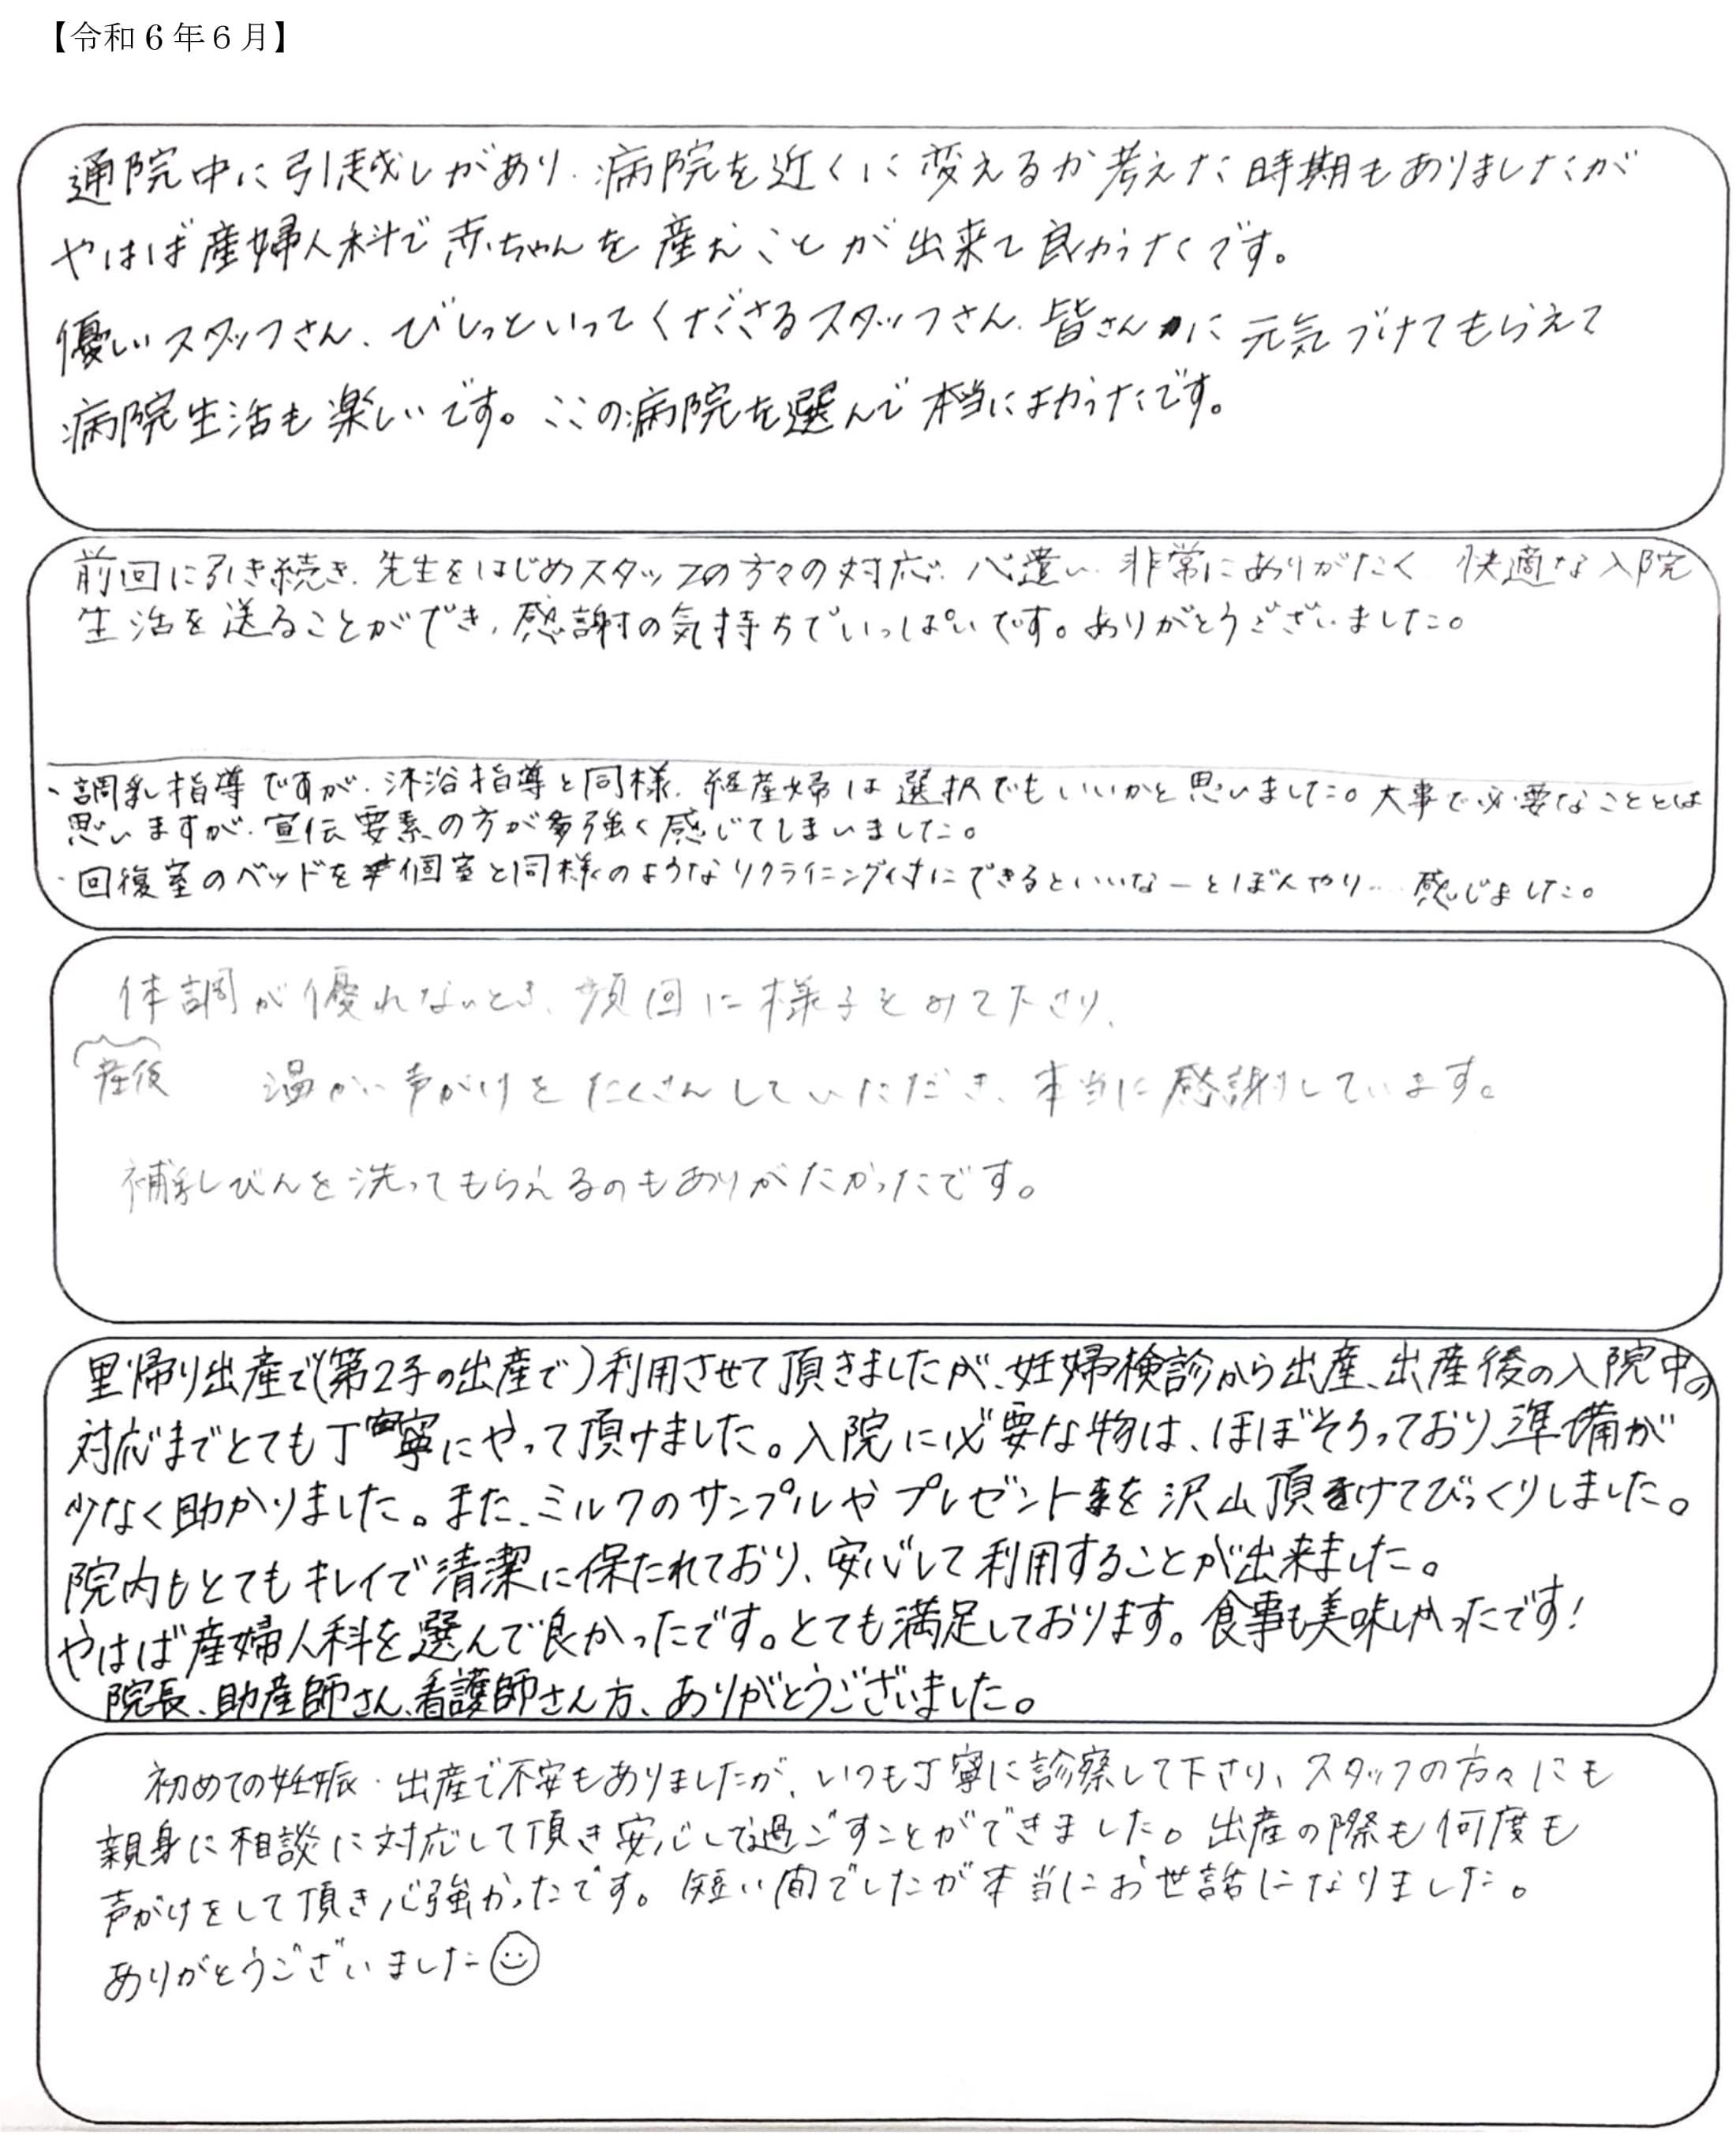 【令和6年6月】
通院中に引越しがあり、病院を近くに変えるか考えた時期もありましたが
やはば産婦人科で赤ちゃんを産むことが出来て良かったです。
優しいスタッフさん、びしっといってくださるスタッフさん、皆さんに元気づけてもらえて
病院生活も楽しいです。ここの病院を選んで本当によかったです。
前回に引き続き、先生をはじめスタッフの方々の対応、心遣い、非常にありがたく 快適な入院
生活を送ることができ、感謝の気持ちでいっぱいです。ありがとうございました。
・調乳指導ですが、沐浴指導と同様、経産婦は選択でもいいかと思いました。大事で必要なこととは
思いますが、宣伝要素の方が強く感じてしまいました。
・回復室のベッドを個室と同様のようなリクライニング付にできるといいなーとぼんやり… 感じました。
体調が優れないとき、頻回に様子をみて下さり、
産後 温かい声がけをたくさんしていただき、本当に感謝しています。
補乳びんを洗ってもらえるのもありがたかったです。
里帰り出産で(第2子の出産で)利用させて頂きましたが、妊婦検診から出産、出産後の入院中の
対応までとても丁寧にやって頂けました。入院に必要な物は、ほぼそろっており、準備が
少なく助かりました。また、ミルクのサンプルやプレゼントを沢山頂けてびっくりしました。
院内もとてもキレイで清潔に保たれており、安心して利用することが出来ました。
やはば産婦人科を選んで良かったです。とても満足しております。食事も美味しかったです!
院長、助産師さん、看護師さん方、ありがとうございました。
初めての妊娠・出産で不安もありましたが、いつも丁寧に診察して下さり、スタッフの方々にも
親身に相談に対応して頂き安心して過ごすことができました。出産の際も何度も
声がけをして頂き心強かったです。短い間でしたが本当にお世話になりました。
ありがとうございました☺